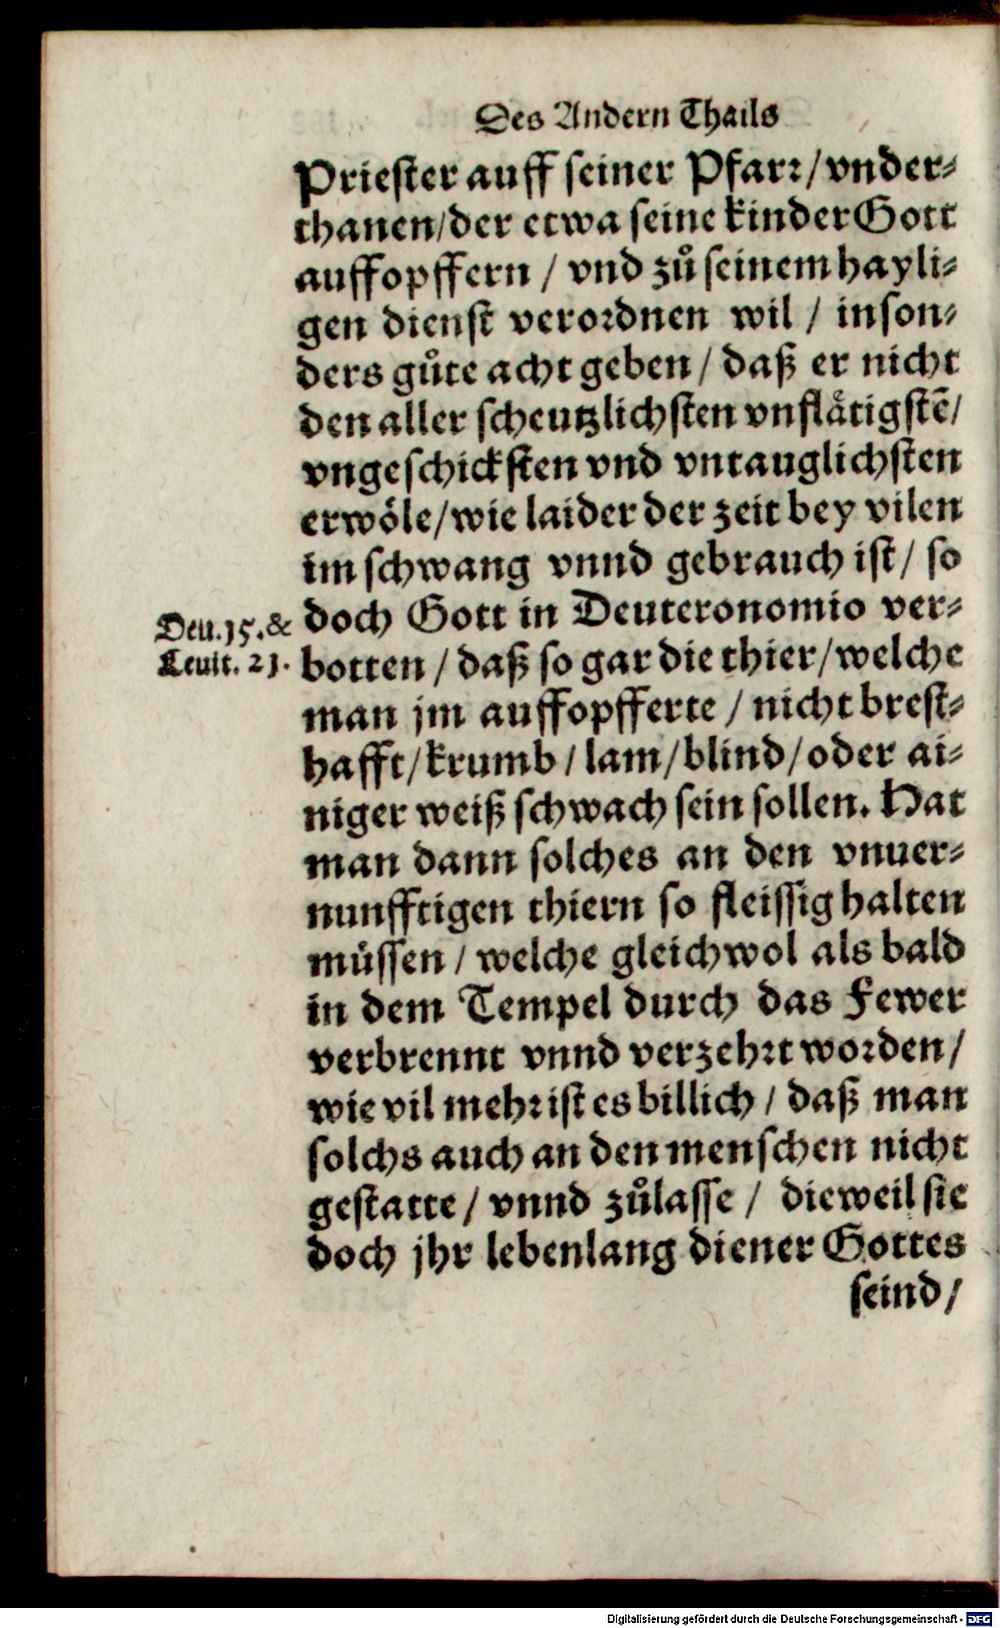 Des Andern Thails
Priester auff seiner Pfarr/vnder-
thanen/der etwa seine kinder Gott
auffopffern / vnd zů seinem hayli-
gen dienst verordnen wil / inson-
ders gůte acht geben / daß er nicht
den aller scheutzlichsten vnflätigstē/
vngeschicksten vnd vntauglichsten
erwöle/wie laider der zeit bey vilen
im schwang vnnd gebrauch ist / so
doch Gott in Deuteronomio ver-
Deu. 15. &
Leuit. 21.
botten / daß so gar die thier/welche
man jm auffopfferte / nicht brest-
hafft/krumb / lam/blind/oder ai-
niger weiß schwach sein sollen. Hat
man dann solches an den vnuer-
nunfftigen thiern so fleissig halten
müssen / welche gleichwol als bald
in dem Tempel durch das Fewer
verbrennt vnnd verzehrt worden/
wie vil mehr ist es billich / daß man
solchs auch an den menschen nicht
gestatte / vnnd zůlasse / dieweil sie
doch jhr lebenlang diener Gottes
seind /
Digitalisierung gefördert durch die Deutsche Forschungsgemeinschaft - DFG